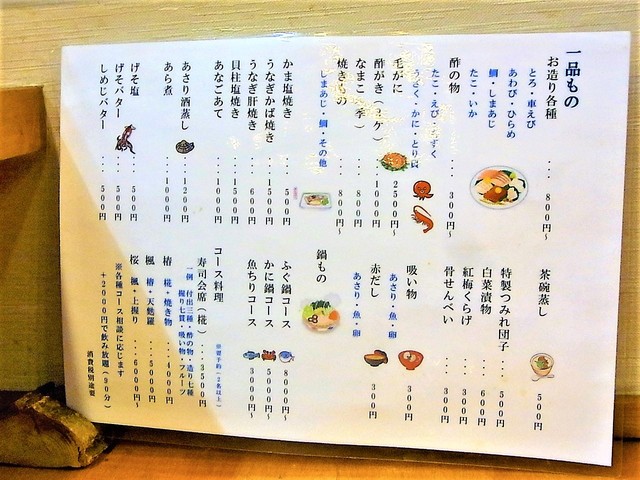 一品もの
お造り各種 ... 800円~
とろ・車えび
あわび・ひらめ
鯛・しまあじ
たこ・いか
酢の物 ... 300円~
たこ・えび・もずく
うざく・かに・とり貝
毛がに ... 2500円~
酢がき(2ケ) ... 1000円
なまこ(季) ... 800円
焼きもの ... 800円~
しまあじ・鯛・その他
かま塩焼き ... 500円
うなぎかば焼き ... 1500円
うなぎ肝焼き ... 600円
貝柱塩焼き ... 1500円
あなごあて ... 1000円
あさり酒蒸し ... 1200円
あら煮 ... 1000円
げそ塩 ... 500円
げそバター ... 500円
しめじバター ... 500円
茶碗蒸し ... 500円
特製つみれ団子 ... 500円
白菜漬物 ... 600円
紅梅くらげ ... 300円
骨せんべい ... 300円
吸い物 ... 300円
あさり・魚・卵
赤だし ... 300円
あさり・魚・卵
鍋もの
ふぐ鍋コース 8000円~
かに鍋コース 5000円~
魚ちりコース 3000円~
コース料理 ※要予約(2名以上)
寿司会席(椛) ... 3500円
一例 付出三種・酢の物・造り七種
握り七貫・吸い物・フルーツ
椿 椛・焼き物 ... 4000円
楓 椿・天麩羅 ... 5000円
桜 楓・上握り ... 6000円~
※各種コース相談に応じます
+2000円で飲み放題(90分)
消費税別途要